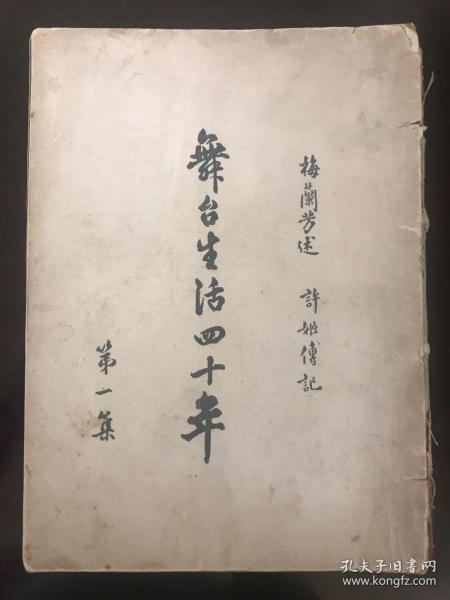 梅蘭芳述 許姬傳記
舞台生活四十年
第一集
孔夫子旧书网
www.kongfz.com